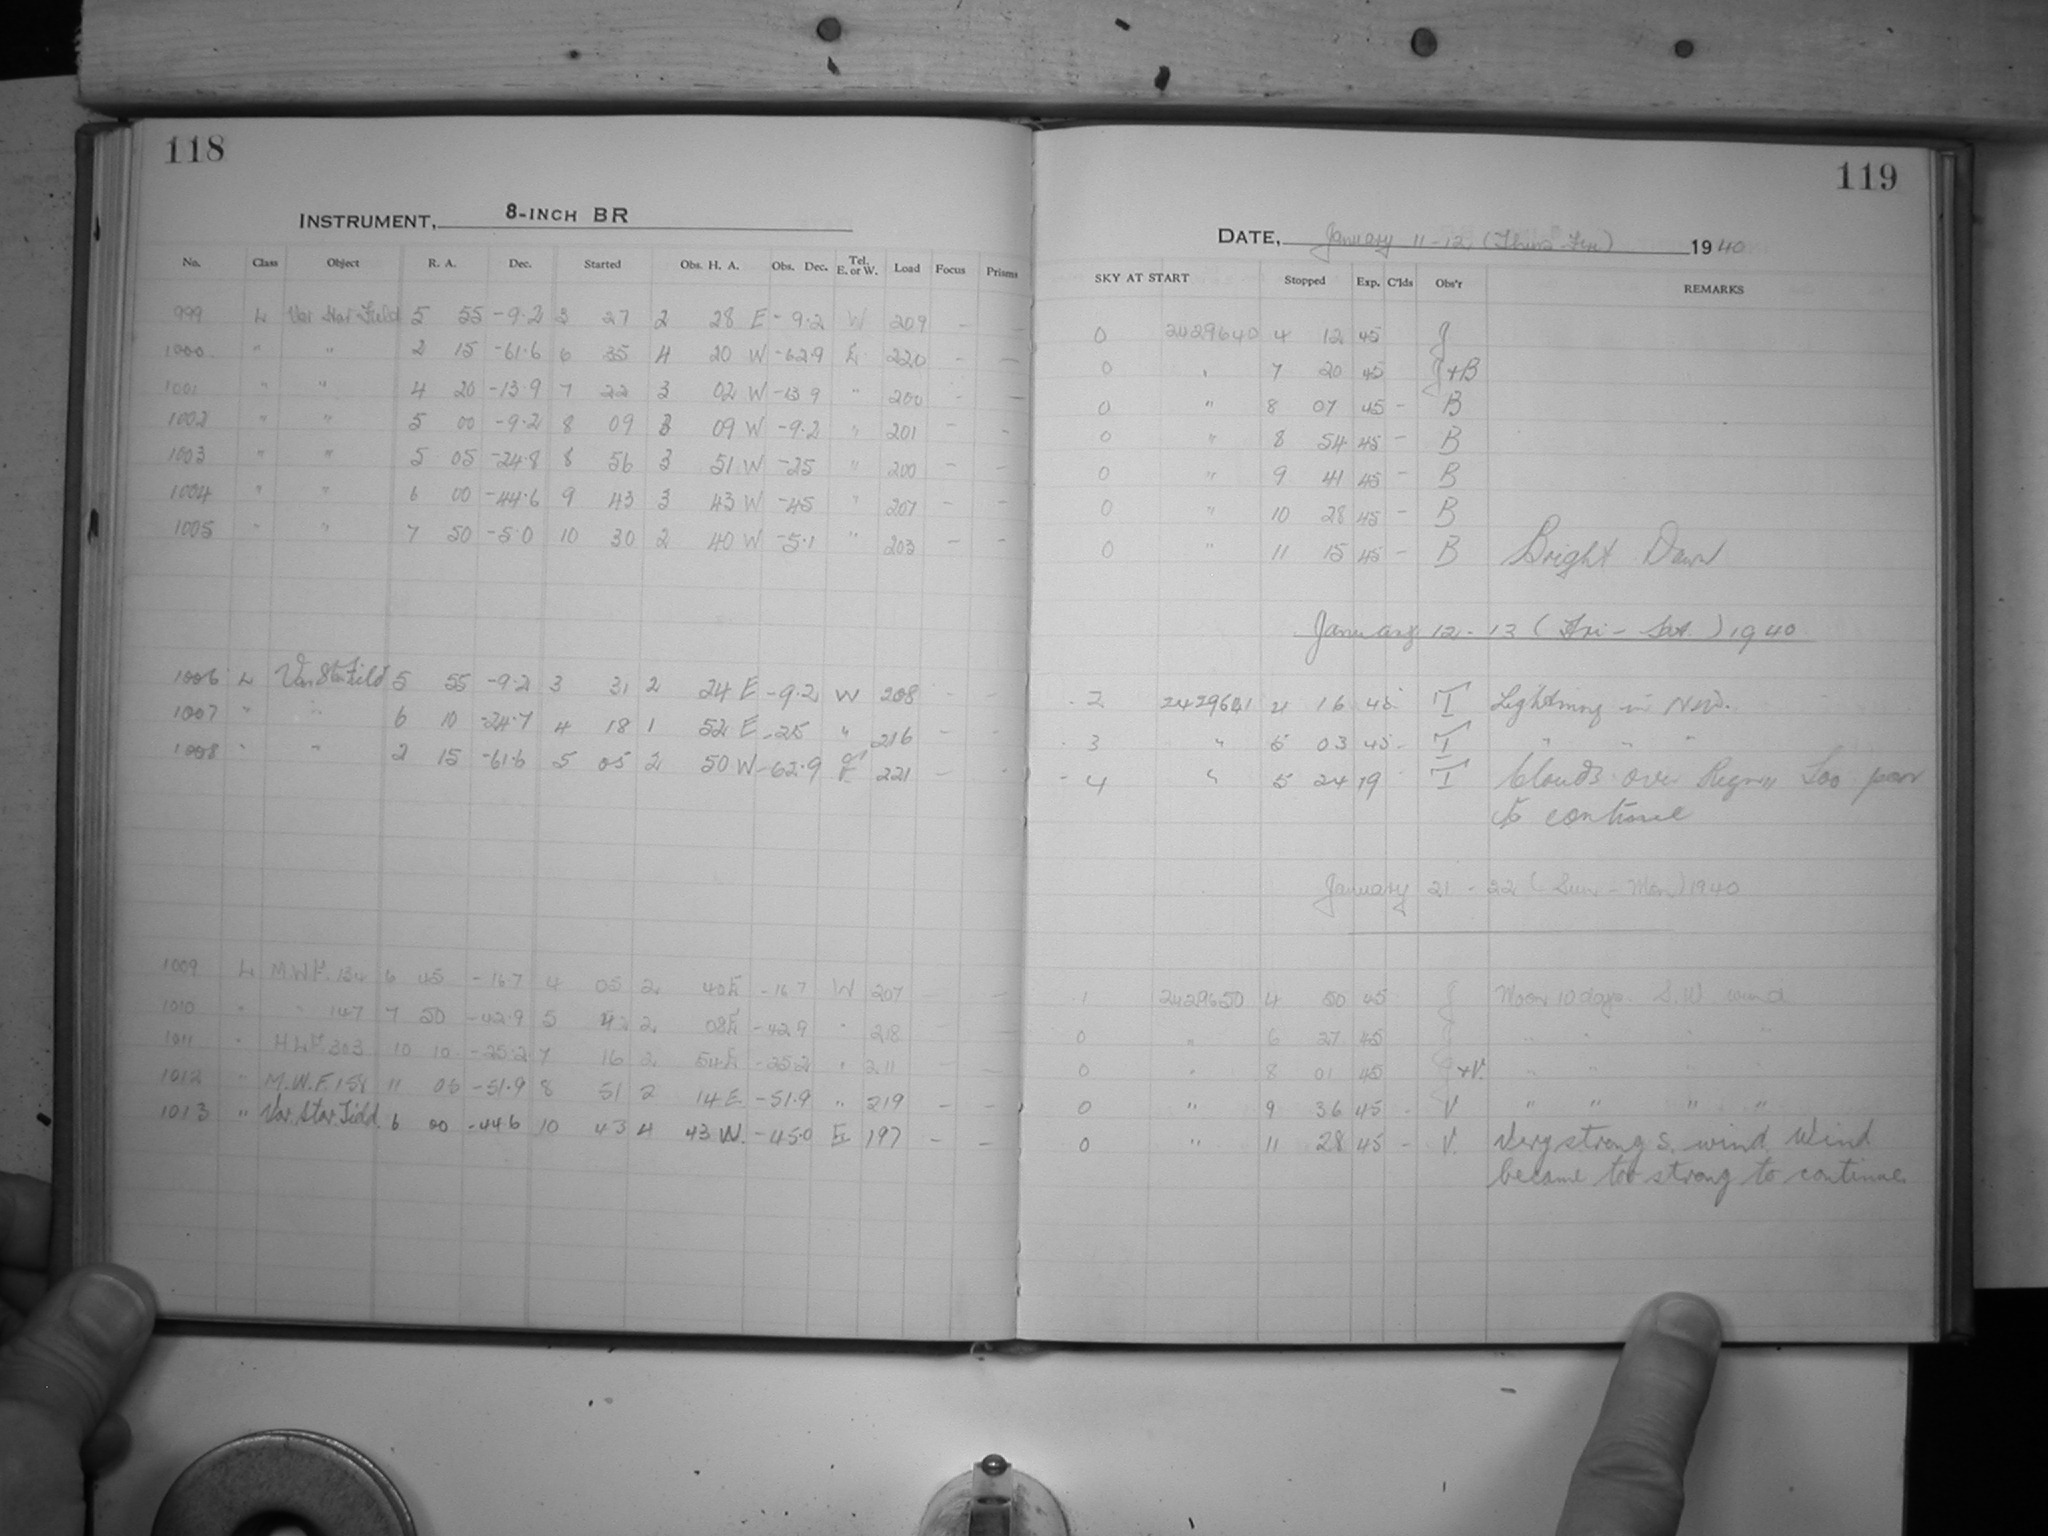 118
INSTRUMENT, 8-INCH BR
No. Class Object R. A. Dec. Started Obs. H. A. Obs. Dec. Tel. E. or W. Load Focus Prisms
999 L Var Star Field 5 55 -9.2 3 27 2 28 E -9.2 W 209 - -
1000 " " 2 15 -61.6 6 35 4 20 W -62.9 E 220 - -
1001 " " 4 20 -13.9 7 22 3 02 W -13 9 " 200 - -
1002 " " 5 00 -9.2 8 09 3 09 W -9.2 " 201 - -
1003 " " 5 05 -24.8 8 56 3 51 W -25 " 200 - -
1004 " " 6 00 -44.6 9 43 3 43 W -45 " 207 - -
1005 " " 7 50 -5.0 10 30 2 40 W -5.1 " 203 - -
1006 L Var Star Field 5 55 -9.2 3 31 2 24 E -9.2 W 208 - -
1007 " " 6 10 -24.7 4 18 1 52 E -25 " 216 - -
1008 " " 2 15 -61.6 5 05 2 50 W -62.9 E 221 - -
1009 L M.W.F. 134 6 45 -16.7 4 05 2 40 E -16 7 W 207
1010 " " 147 7 50 -42.9 5 42 2 08 E -42 9 " 218
1011 " H.L.F. 303 10 10 -25.2 7 16 2 54 E -25.2 " 211
1012 " M.W.F. 158 11 05 -51.9 8 51 2 14 E -51.9 " 219 - -
1013 " Var. Star Field 6 00 -44.6 10 43 4 43 W. -45.0 E 197 - -
119
DATE, January 11-12 (Thurs-Fri) 1940
SKY AT START Stopped Exp. C'lds Obs'r REMARKS
0 2429640 4 12 45 J
0 " 7 20 45 J+B
0 " 8 07 45 - B
0 " 8 54 45 - B
0 " 9 41 45 - B
0 " 10 28 45 - B
0 " 11 15 45 - B Bright Dawn
January 12-13 (Fri-Sat.) 1940
2 2429641 4 16 45 T Lightning in NW.
3 " 5 03 45 - T " " "
4 " 5 24 19 T Clouds over Region Too poor
to continue
January 21-22 (Sun-Mon) 1940
1 2429650 4 50 45 J Moon 10 days. S.W wind
0 " 6 27 45 J " " " "
0 " 8 01 45 J+V. " " " "
0 " 9 36 45 - V " " " "
0 " 11 28 45 - V. Very strong S. wind. Wind
became too strong to continue.